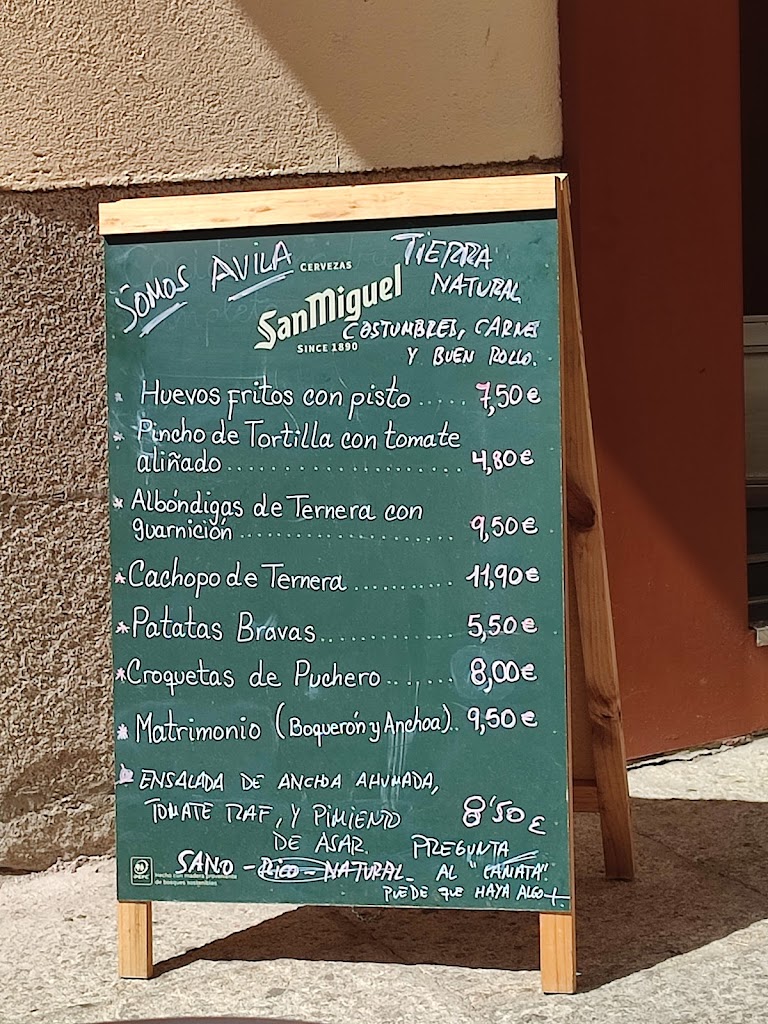 SOMOS AVILA
TIERRA
NATURAL
CERVEZAS
SanMiguel
SINCE 1890
COSTUMBRES, CARNES
Y BUEN ROLLO.
* Huevos fritos con pisto ..... 7,50€
* Pincho de Tortilla con tomate
aliñado ..................... 4,80€
* Albóndigas de Ternera con
guarnición ..................... 9,50€
* Cachopo de Ternera .......... 11,90€
* Patatas Bravas .............. 5,50€
* Croquetas de Puchero ....... 8,00€
* Matrimonio (Boquerón y Anchoa).. 9,50€
ENSALADA DE ANCHOA AHUMADA,
TOMATE RAF, Y PIMIENTO 8'50€
DE ASAR.
SANO - RICO - NATURAL.
PREGUNTA
AL "CAÑATA"
PUEDE QUE HAYA ALGO +
PEFC
Hecho con madera proveniente
de bosques sostenibles